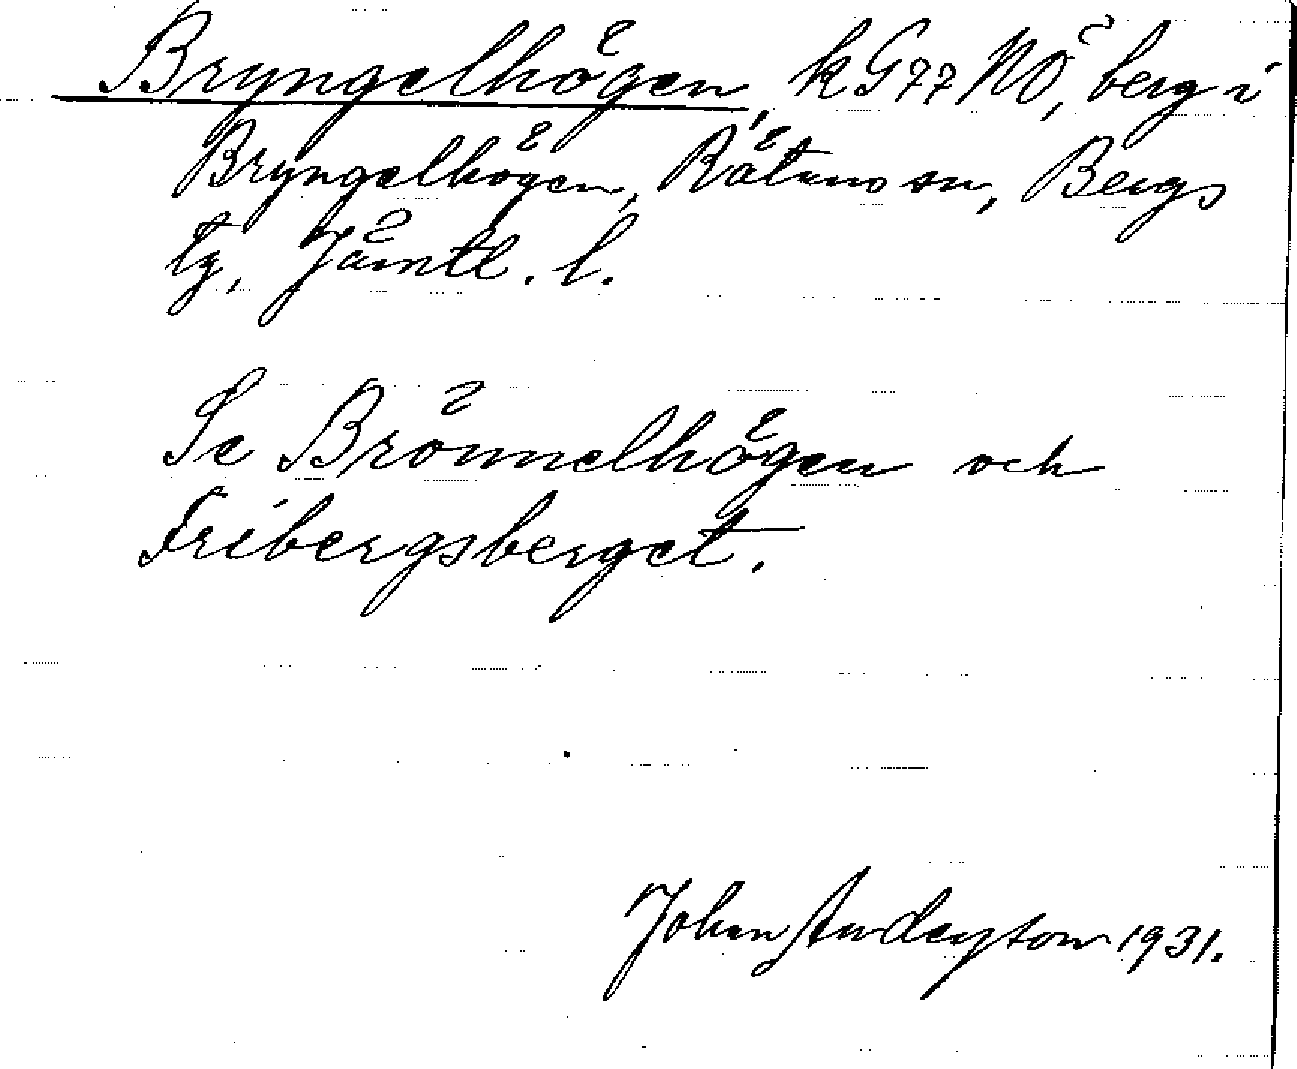 Bryngelhögen, k G77 NÖ, berg i
Bryngelhögen, Rätans sn, Bergs
tg, Jämtl. l.
Se Brönnelhögen och
Fribergsberget.
Johan Anderzson 1931.